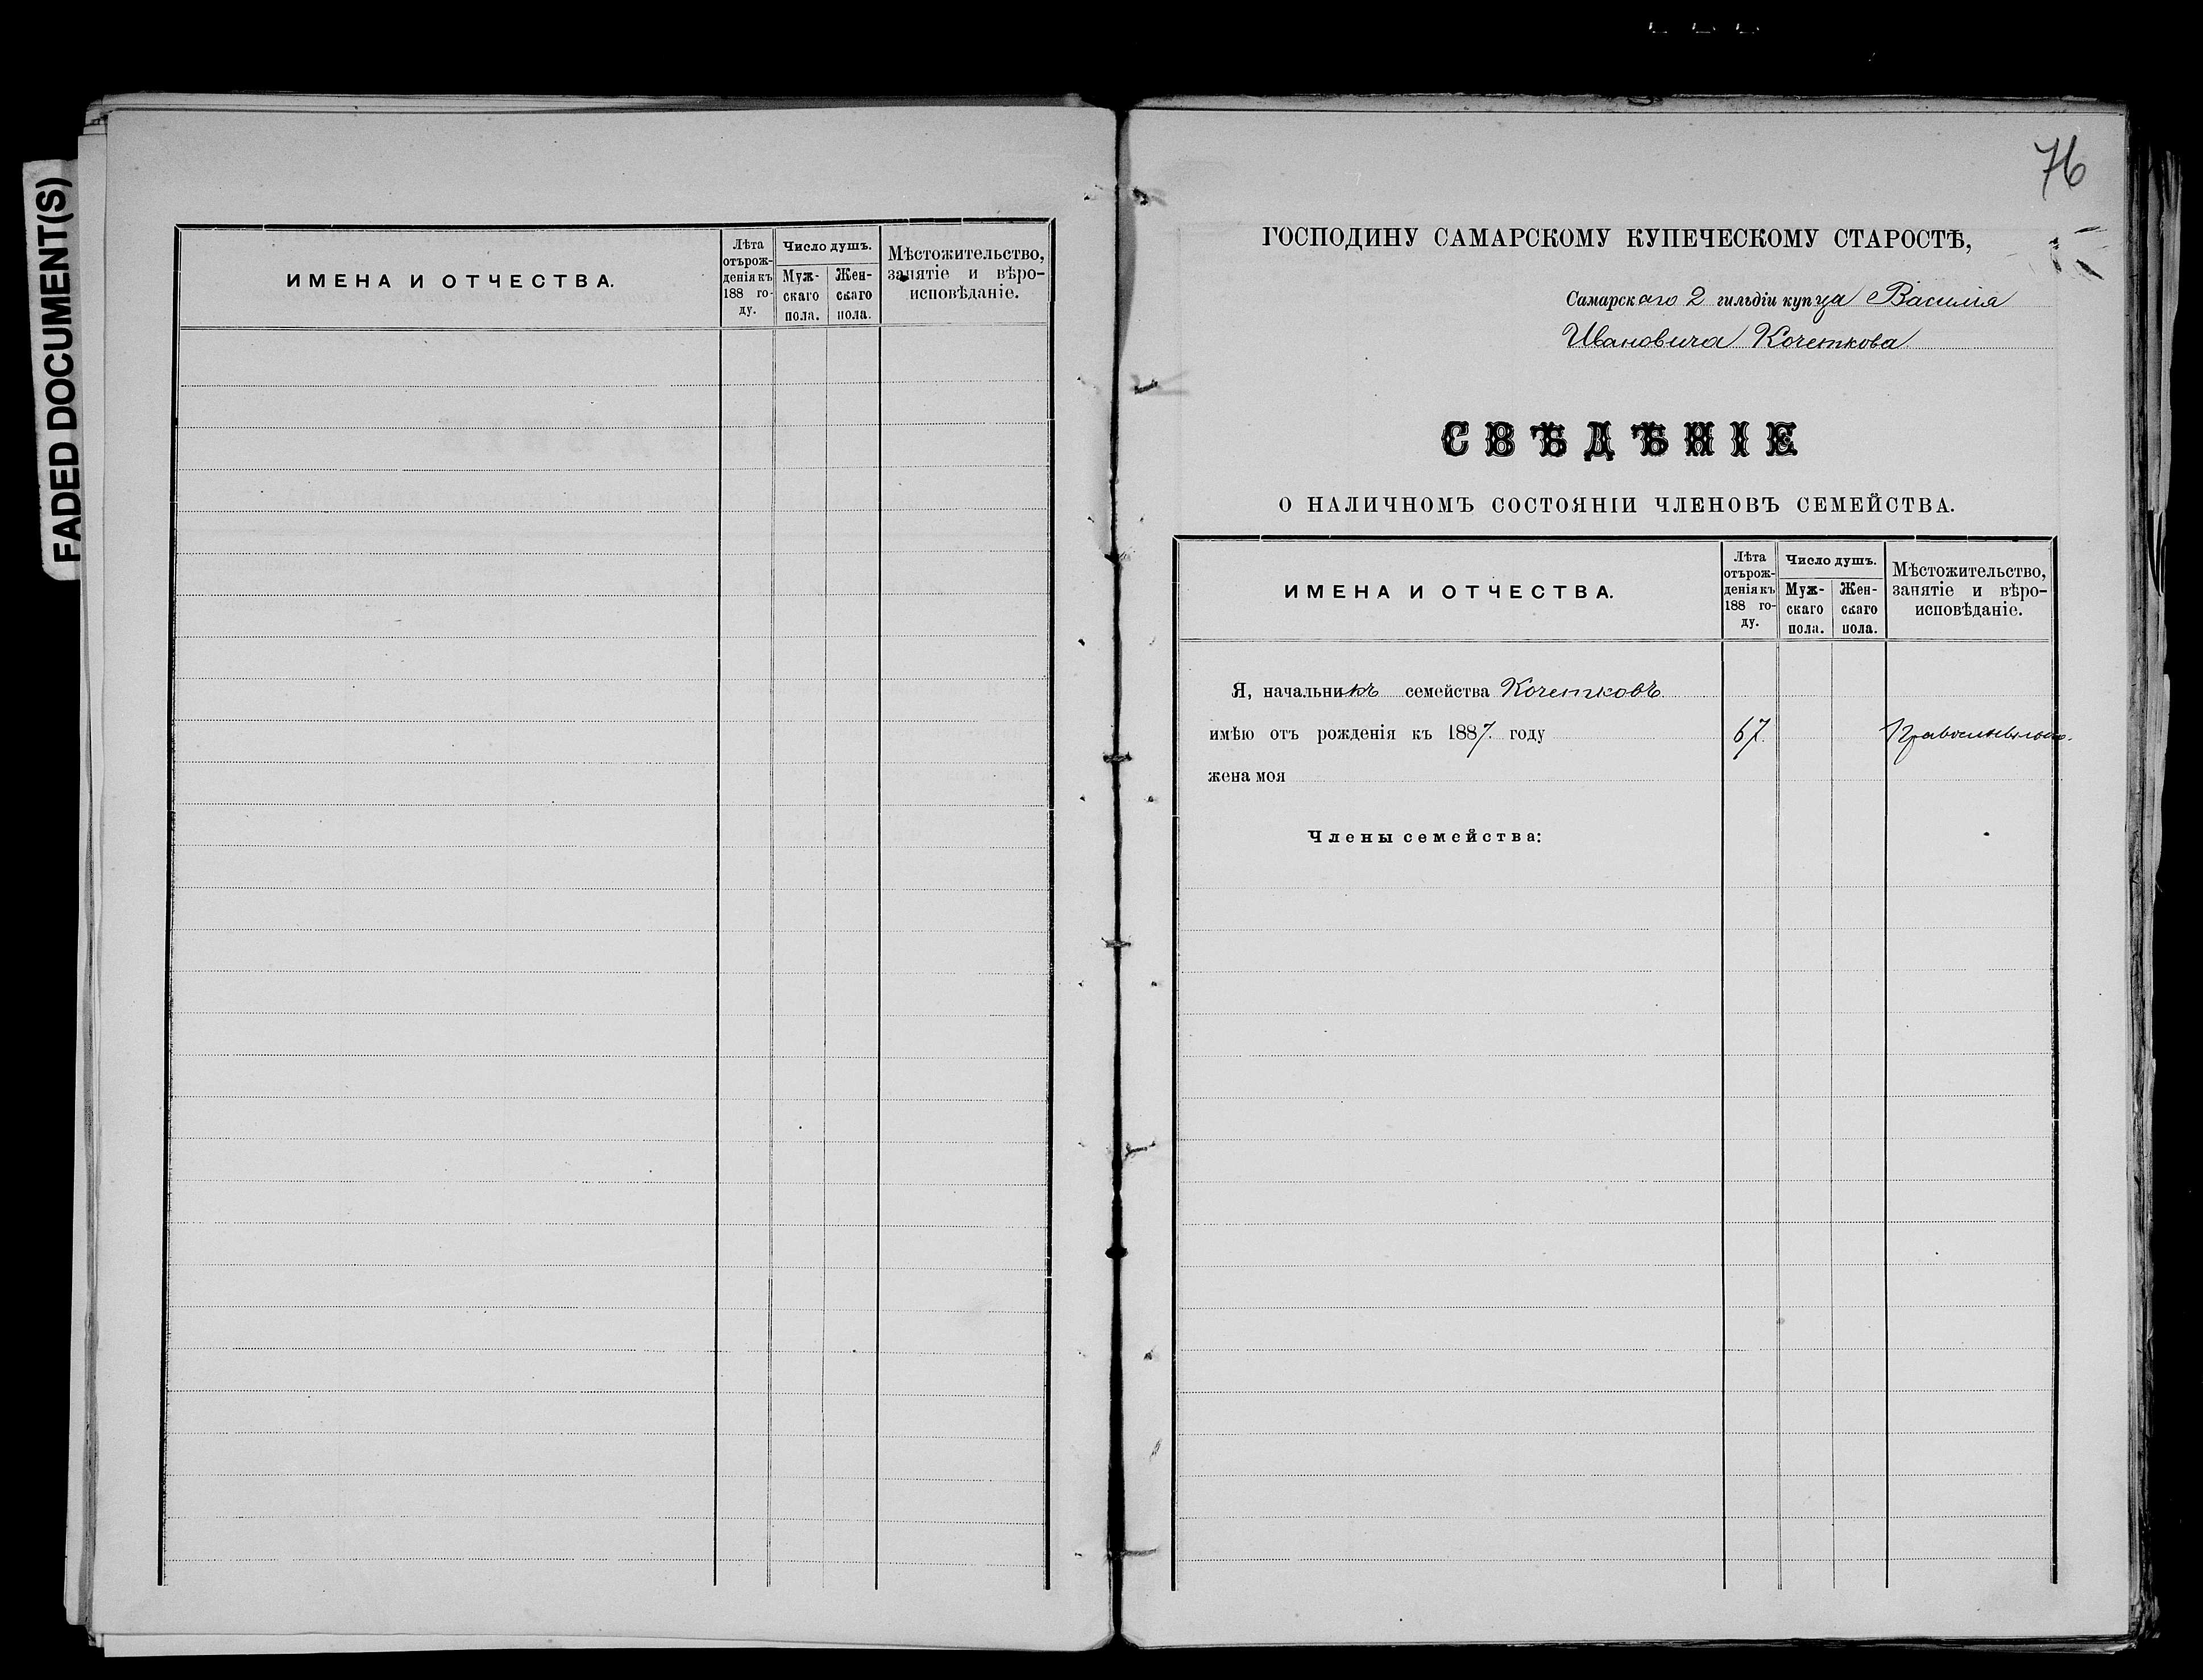 FADED DOCUMENT(S)
ИМЕНА И ОТЧЕСТВА.
Лѣта
отърож-
денія къ
188 го-
ду.
Число душъ.
Муж-
скаго
пола.
Жен-
скаго
пола.
Мѣстожительство,
занятіе и вѣро-
исповѣданіе.
76
ГОСПОДИНУ САМАРСКОМУ КУПЕЧЕСКОМУ СТАРОСТѢ,
Самарскаго 2 гильдіи купца Василія
Ивановича Кочеткова
СВѢДѢНІЕ
О НАЛИЧНОМЪ СОСТОЯНІИ ЧЛЕНОВЪ СЕМЕЙСТВА.
ИМЕНА И ОТЧЕСТВА.
Лѣта
отърож-
денія къ
188 го-
ду.
Число душъ.
Муж-
скаго
пола.
Жен-
скаго
пола.
Мѣстожительство,
занятіе и вѣро-
исповѣданіе.
Я, начальникъ семейства Кочетковъ
имѣю отъ рожденія къ 1887 году 67
жена моя
Члены семейства: